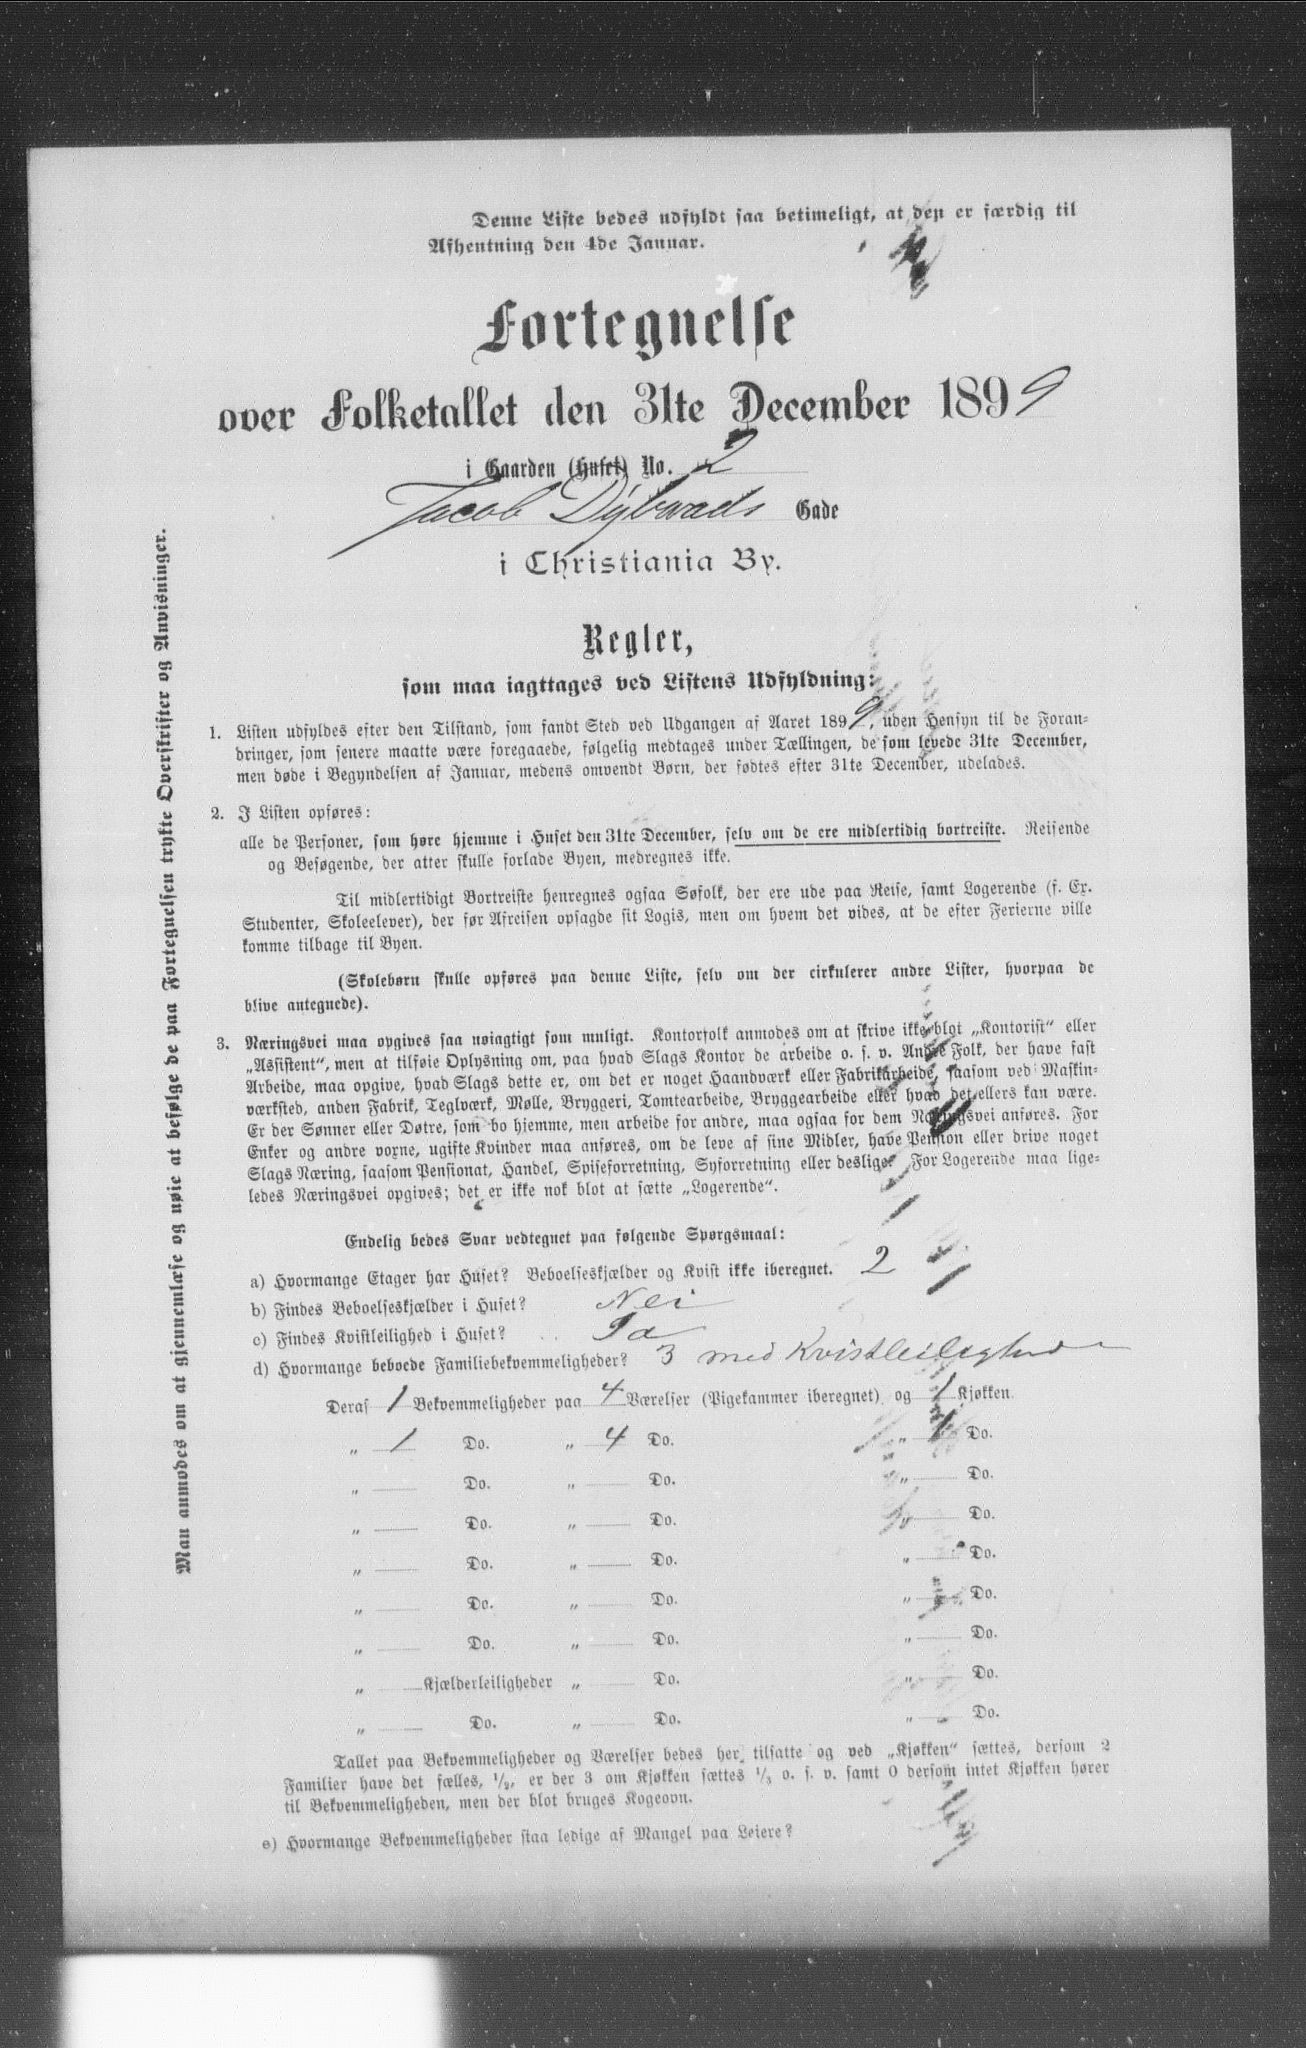 Denne Liste bedes udfyldt saa betimeligt, at den er færdig til
Afhentning den 4de Januar.
Fortegnelse
over Folketallet den 31te December 1899
i Gaarden (Huset) No. 2
Jacob Dybwads Gade
i Christiania By.
Regler,
som maa iagttages ved Listens Udfyldning:
1. Listen udfyldes efter den Tilstand, som fandt Sted ved Udgangen af Aaret 1899, uden Hensyn til de Foran-
dringer, som senere maatte være foregaaede, følgelig medtages under Tællingen, de som levede 31te December,
men døde i Begyndelsen af Januar, medens omvendt Børn, der fødtes efter 31te December, udelades.
2. I Listen opføres:
alle de Personer, som høre hjemme i Huset den 31te December, selv om de ere midlertidig bortreiste. Reisende
og Besøgende, der atter skulle forlade Byen, medregnes ikke.
Til midlertidigt Bortreiste henregnes ogsaa Søfolk, der ere ude paa Reise, samt Logerende (f. Ex.
Studenter, Skoleelever), der før Afreisen opsagde sit Logis, men om hvem det vides, at de efter Ferierne ville
komme tilbage til Byen.
(Skolebørn skulle opføres paa denne Liste, selv om der cirkulerer andre Lister, hvorpaa de
blive antegnede).
3. Næringsvei maa opgives saa nøiagtigt som muligt. Kontorfolk anmodes om at skrive ikke blot „Kontorist“ eller
„Assistent“, men at tilføie Oplysning om, paa hvad Slags Kontor de arbeide o. s. v. Andre Folk, der have fast
Arbeide, maa opgive, hvad Slags dette er, om det er noget Haandværk eller Fabrikarbeide, saasom ved Maskin-
værksted, anden Fabrik, Teglværk, Mølle, Bryggeri, Tomtearbeide, Bryggearbeide eller hvad det ellers kan være.
Er der Sønner eller Døtre, som bo hjemme, men arbeide for andre, maa ogsaa for dem Næringsvei anføres. For
Enker og andre voxne, ugifte Kvinder maa anføres, om de leve af sine Midler, have Pension eller drive noget
Slags Næring, saasom Pensionat, Handel, Spiseforretning, Syforretning eller deslige. For Logerende maa lige-
ledes Næringsvei opgives; det er ikke nok blot at sætte „Logerende“.
Endelig bedes Svar vedtegnet paa følgende Spørgsmaal:
a) Hvormange Etager har Huset? Beboelseskjælder og Kvist ikke iberegnet. 2
b) Findes Beboelseskjælder i Huset? Nei
c) Findes Kvistleilighed i Huset? Ja
d) Hvormange beboede Familiebekvemmeligheder? 3 med Kvistleilighed
Deraf 1 Bekvemmeligheder paa 4 Værelser (Pigekammer iberegnet) og 1 Kjøkken
„ 1 Do. „ 4 Do. „ 1 Do.
„ Do. „ Do. „ Do.
„ Do. „ Do. „ Do.
„ Do. „ Do. „ Do.
„ Do. „ Do. „ Do.
„ Do. „ Do. „ Do.
„ Kjælderleiligheder „ Do. „ Do.
„ Do. „ Do. „ Do.
Tallet paa Bekvemmeligheder og Værelser bedes her tilsatte og ved „Kjøkken“ sættes, dersom 2
Familier have det fælles, 1/2, er der 3 om Kjøkken sættes 1/3 o. s. v. samt 0 dersom intet Kjøkken hører
til Bekvemmeligheden, men der blot bruges Kogeovn.
e) Hvormange Bekvemmeligheder staa ledige af Mangel paa Leiere?
Man anmodes om at gjennemlæse og nøie at befølge de paa Fortegnelsen trykte Overskrifter og Anvisninger.